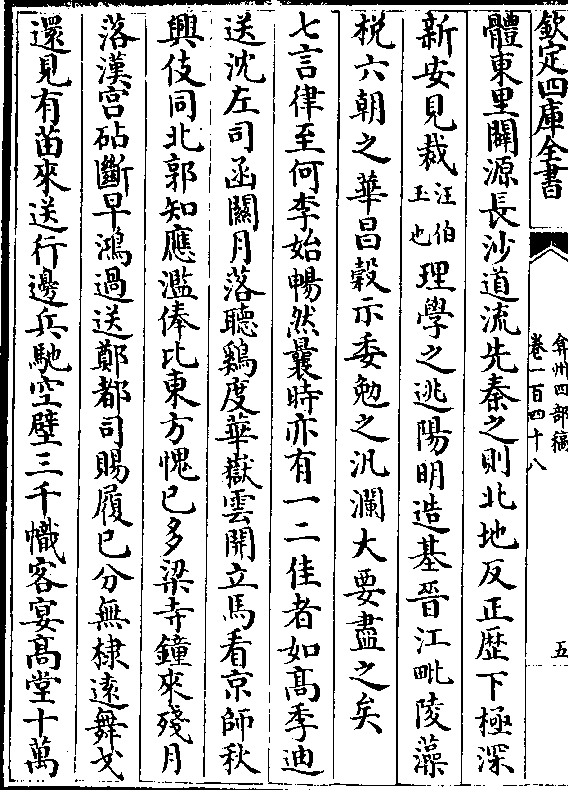 欽定四庫全書
弇州四部稿
卷一百四十八
五
體東里闢源長沙道流先秦之則北地反正歷下極深
新安見裁汪伯玉也理學之逃陽明造基晉江毗陵藻
梲六朝之華昌穀示委勉之汎瀾大要盡之矣
七言律至何李始暢然曩時亦有一二佳者如高季迪
送沈左司函關月落聽鷄度華嶽雲開立馬看京師秋
興伎同北郭知應濫俸比東方愧已多梁寺鐘來殘月
落漢宮砧斷早鴻過送鄭都司賜履已分無棣遠舞戈
還見有苗來送行邊兵馳空壁三千幟客宴高堂十萬